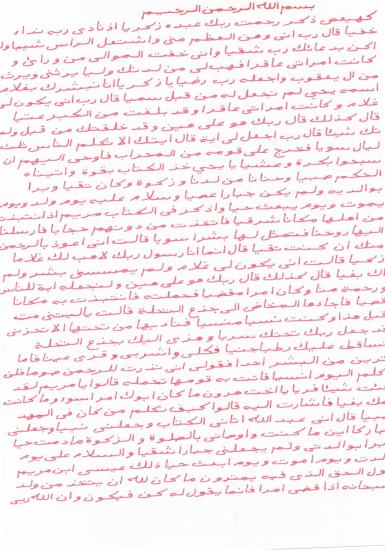 بسم الله الرحمن الرحيم
كهيعص ذكر رحمت ربك عبده زكريا اذ نادى ربه نداء
خفيا قال رب انى وهن العظم منى واشتعل الراس شيبا ولم
اكن بدعائك رب شقيا وانى خفت الموالى من ورائ و
كانت امراتى عاقرا فهب لى من لدنك وليا يرثنى ويرث
من ال يعقوب واجعله رب رضيا يا زكريا انا نبشرك بغلام
اسمه يحيى لم نجعل له من قبل سميا قال رب انى يكون لى
غلام و كانت امراتى عاقرا وقد بلغت من الكبر عتيا
قال كذلك قال ربك هو على هين وقد خلقتك من قبل ولم
تك شيئا قال رب اجعل لى اية قال ايتك الا تكلم الناس ثلث
ليال سويا فخرج على قومه من المحراب فاوحى اليهم ان
سبحوا بكرة و عشيا يا يحيى خذ الكتاب بقوة واتيناه
الحكم صبيا وحنانا من لدنا و زكوة وكان تقيا وبرا
بوالديه ولم يكن جبارا عصيا وسلام عليه يوم ولد ويوم
يموت ويوم يبعث حيا واذكر فى الكتاب مريم اذ انتبذت
من اهلها مكانا شرقيا فاتخذت من دونهم حجابا فارسلنا
اليها روحنا فتمثل لها بشرا سويا قالت انى اعوذ بالرحمن
منك ان كنت تقيا قال انما انا رسول ربك لاهب لك غلاما
زكيا قالت انى يكون لى غلام ولم يمسسنى بشر ولم
اك بغيا قال كذلك قال ربك هو على هين ولنجعله اية للناس
ورحمة منا وكان امرا مقضيا فحملته فانتبذت به مكانا
قصيا فاجاءها المخاض الى جذع النخلة قالت ياليتنى مت
قبل هذا وكنت نسيا منسيا فناديها من تحتها الا تحزنى
قد جعل ربك تحتك سريا وهزى اليك بجذع النخلة
تساقط عليك رطبا جنيا فكلى واشربى و قرى عينا فاما
ترين من البشر احدا فقولى انى نذرت للرحمن صوما فلن
اكلم اليوم انسيا فاتت به قومها تحمله قالوا يا مريم لقد
جئت شيئا فريا يا اخت هرون ما كان ابوك امرا سوء وما كانت
امك بغيا فاشارت اليه قالوا كيف نكلم من كان فى المهد
صبيا قال انى عبد الله اتانى الكتاب وجعلنى نبيا وجعلنى
مباركا اين ما كنت واوصانى بالصلوة و الزكوة ما دمت حيا
وبرا بوالدتى ولم يجعلنى جبارا شقيا والسلام على يوم
ولدت و يوم اموت و يوم ابعث حيا ذلك عيسى ابن مريم
قول الحق الذى فيه يمترون ما كان لله ان يتخذ من ولد
سبحانه اذا قضى امرا فانما يقول له كن فيكون وان الله ربى